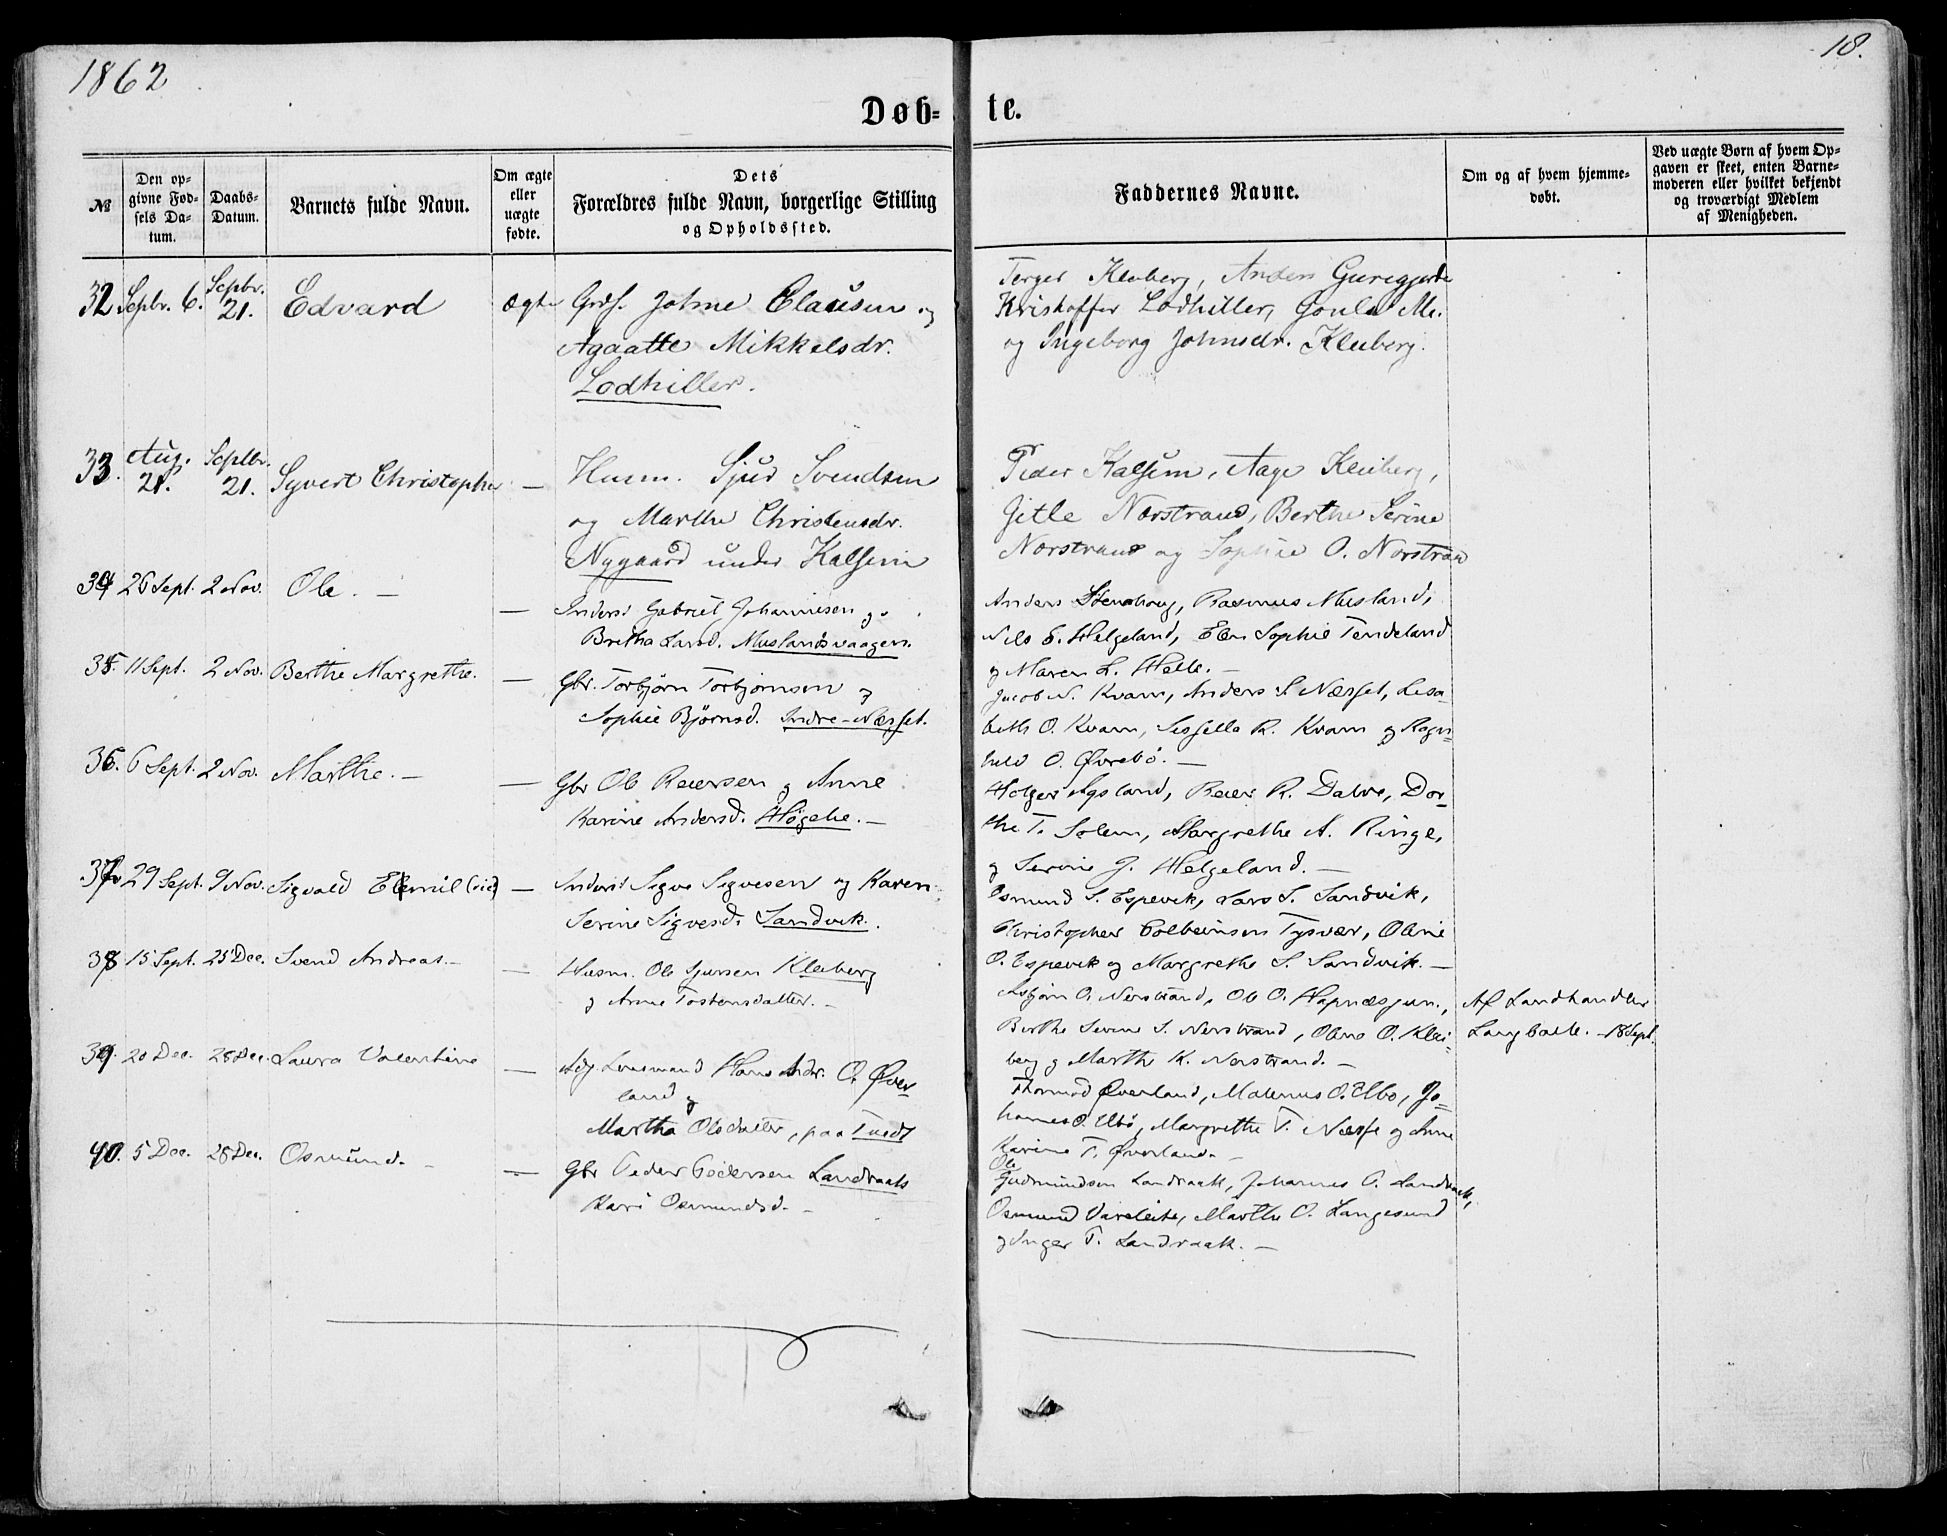 1862
18.
Døb-
te.
№
Den op-
givne Fød-
sels Da-
tum.
Daabs-
Datum.
Barnets fulde Navn.
Om ægte
eller
uægte
fødte.
Dets
Forældres fulde Navn, borgerlige Stilling
og Opholdssted.
Faddernes Navne.
Om og af hvem hjemme-
døbt.
Ved uægte Børn af hvem Op-
gaven er skeet, enten Barne-
moderen eller hvilket bekjendt
og troværdigt Medlem
af Menigheden.
32 Sepbr. 6. Sepbr. 21. Edvard ægte
Johne Clausen og
Agaatte Mikkelsdr.
Lodhiller.
Terger Kleiberg, Anders
Kristoffer Lodhiller,
og Ingeborg Johnsdr. Kleiberg.
33. Aug. 21. Seplbr. 21. Syvert Christopher —
Husm. Sjur Svendsen
og Marthe Christensdr.
Nygaard under Kalsem
Peder Kalsem, Aage Kleiberg,
Gitle Norstrand, Berthe Serine
Norstrand og Sophie O. Norstran
34 26 Sept. 2 Nov. Ole. — —
Inderst Gabriel Johannesen og
Bretha Larsd. Muslandsvaagen.
Anders Stenshoug, Rasmus Musland,
Nils E. Helgeland, Elen Sophie Tendeland
og Maren L. Helle. —
35. 11 Sept. 2 Nov. Berthe Margrethe. —
Gbr. Torbjørn Torbjørnsen og
Sophie Bjørnsd. Indre-Næsset.
Jacob N. Kvam, Anders S. Næsset, Lisa-
beth O. Kvam, Sissella R. Kvam og Ragn-
hild O. Øvrebø. —
36. 6 Sept. 2 Nov. Marthe. — —
Gbr Ole Reiersen og Anne
Karine Andersd. —
Holger Agsland, Reier R. Dalve, Dor-
the T. Solem, Margrethe A. Ringe,
og Serine J. Helgeland. —
37 29 Sept. 9 Nov. Sigvald Elemil (sic) —
Inderst Sigve Sigvesen og Karen
Serine Sigvesd. Sandvik.
Osmund S. Espevik, Lars S. Sandvik,
Christopher Colbeinsen Tysvær, Oline
O. Espevik og Margrethe S. Sandvik. —
38 15 Sept. 25 Dec. Svend Andreas. — —
Husm. Ole Sjursen Kleiberg
og Anne Tostensdatter. —
Asbjørn O. Nerstrand, Ole O.
Berthe Serine S. Nerstrand, Oline O. Klei-
berg og Marthe K. Nerstrand. —
Af Landhandler
Langballe. — 18 Sept.
39. 20 Dec. 28 Dec. Laura Valentine —
Adj. Lensmand Hans Andr. O. Øver-
land og
Martha Olsdatter, paa Tvedt
Thormod Øverland, Malenus O. Elbø, Jo-
hannes O. Elbø, Margrethe T. Næsse og Anne
Karine T. Øverland. —
40. 5 Dec. 28 Dec. Osmund. — —
Gbr Peder Pedersen Landraak
Kari Osmundsd. —
Ole
Gudmundsen Landraak, Johannes P. Landraak,
Osmund Vareleite, Marthe O. Langesund
og Inger T. Landraak. —